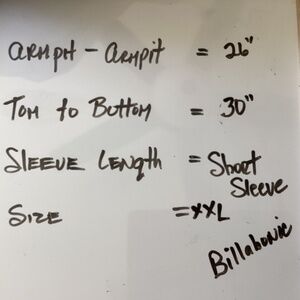 ARMPIT - ARMPIT = 26"
TOM to BOTTOM = 30"
SLEEVE LENGTH = Short
Sleeve
SIZE =XXL
Billabonie